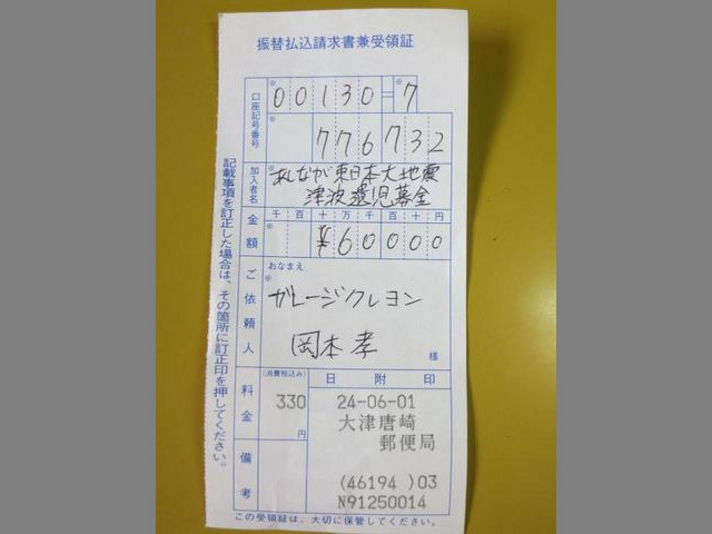 振替払込請求書兼受領証
口座記号番号
※ 00130=※7
※ 776732
加入者名
※ あしなが東日本大地震
津波遺児募金
金額
千百十万千百十円
※ ¥60000
ご依頼人
おなまえ
※
ガレージクレヨン
岡本孝
様
料金
(消費税込み)
330
円
日附印
24-06-01
大津唐崎
郵便局
(46194 )03
N91250014
備考
この受領証は、大切に保管してください。
記載事項を訂正した場合は、その箇所に訂正印を押してください。